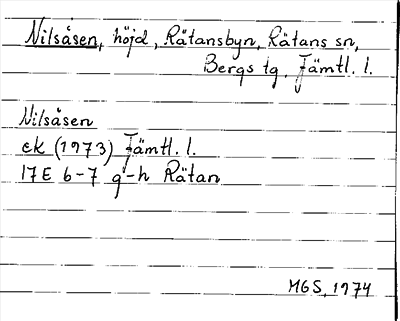 Nilsåsen, höjd, Rätansbyn, Rätans sn,
Bergs tg, Jämtl. l.
Nilsåsen
ek (1973) Jämtl. l.
17E 6-7 g-h Rätan
MGS, 1974